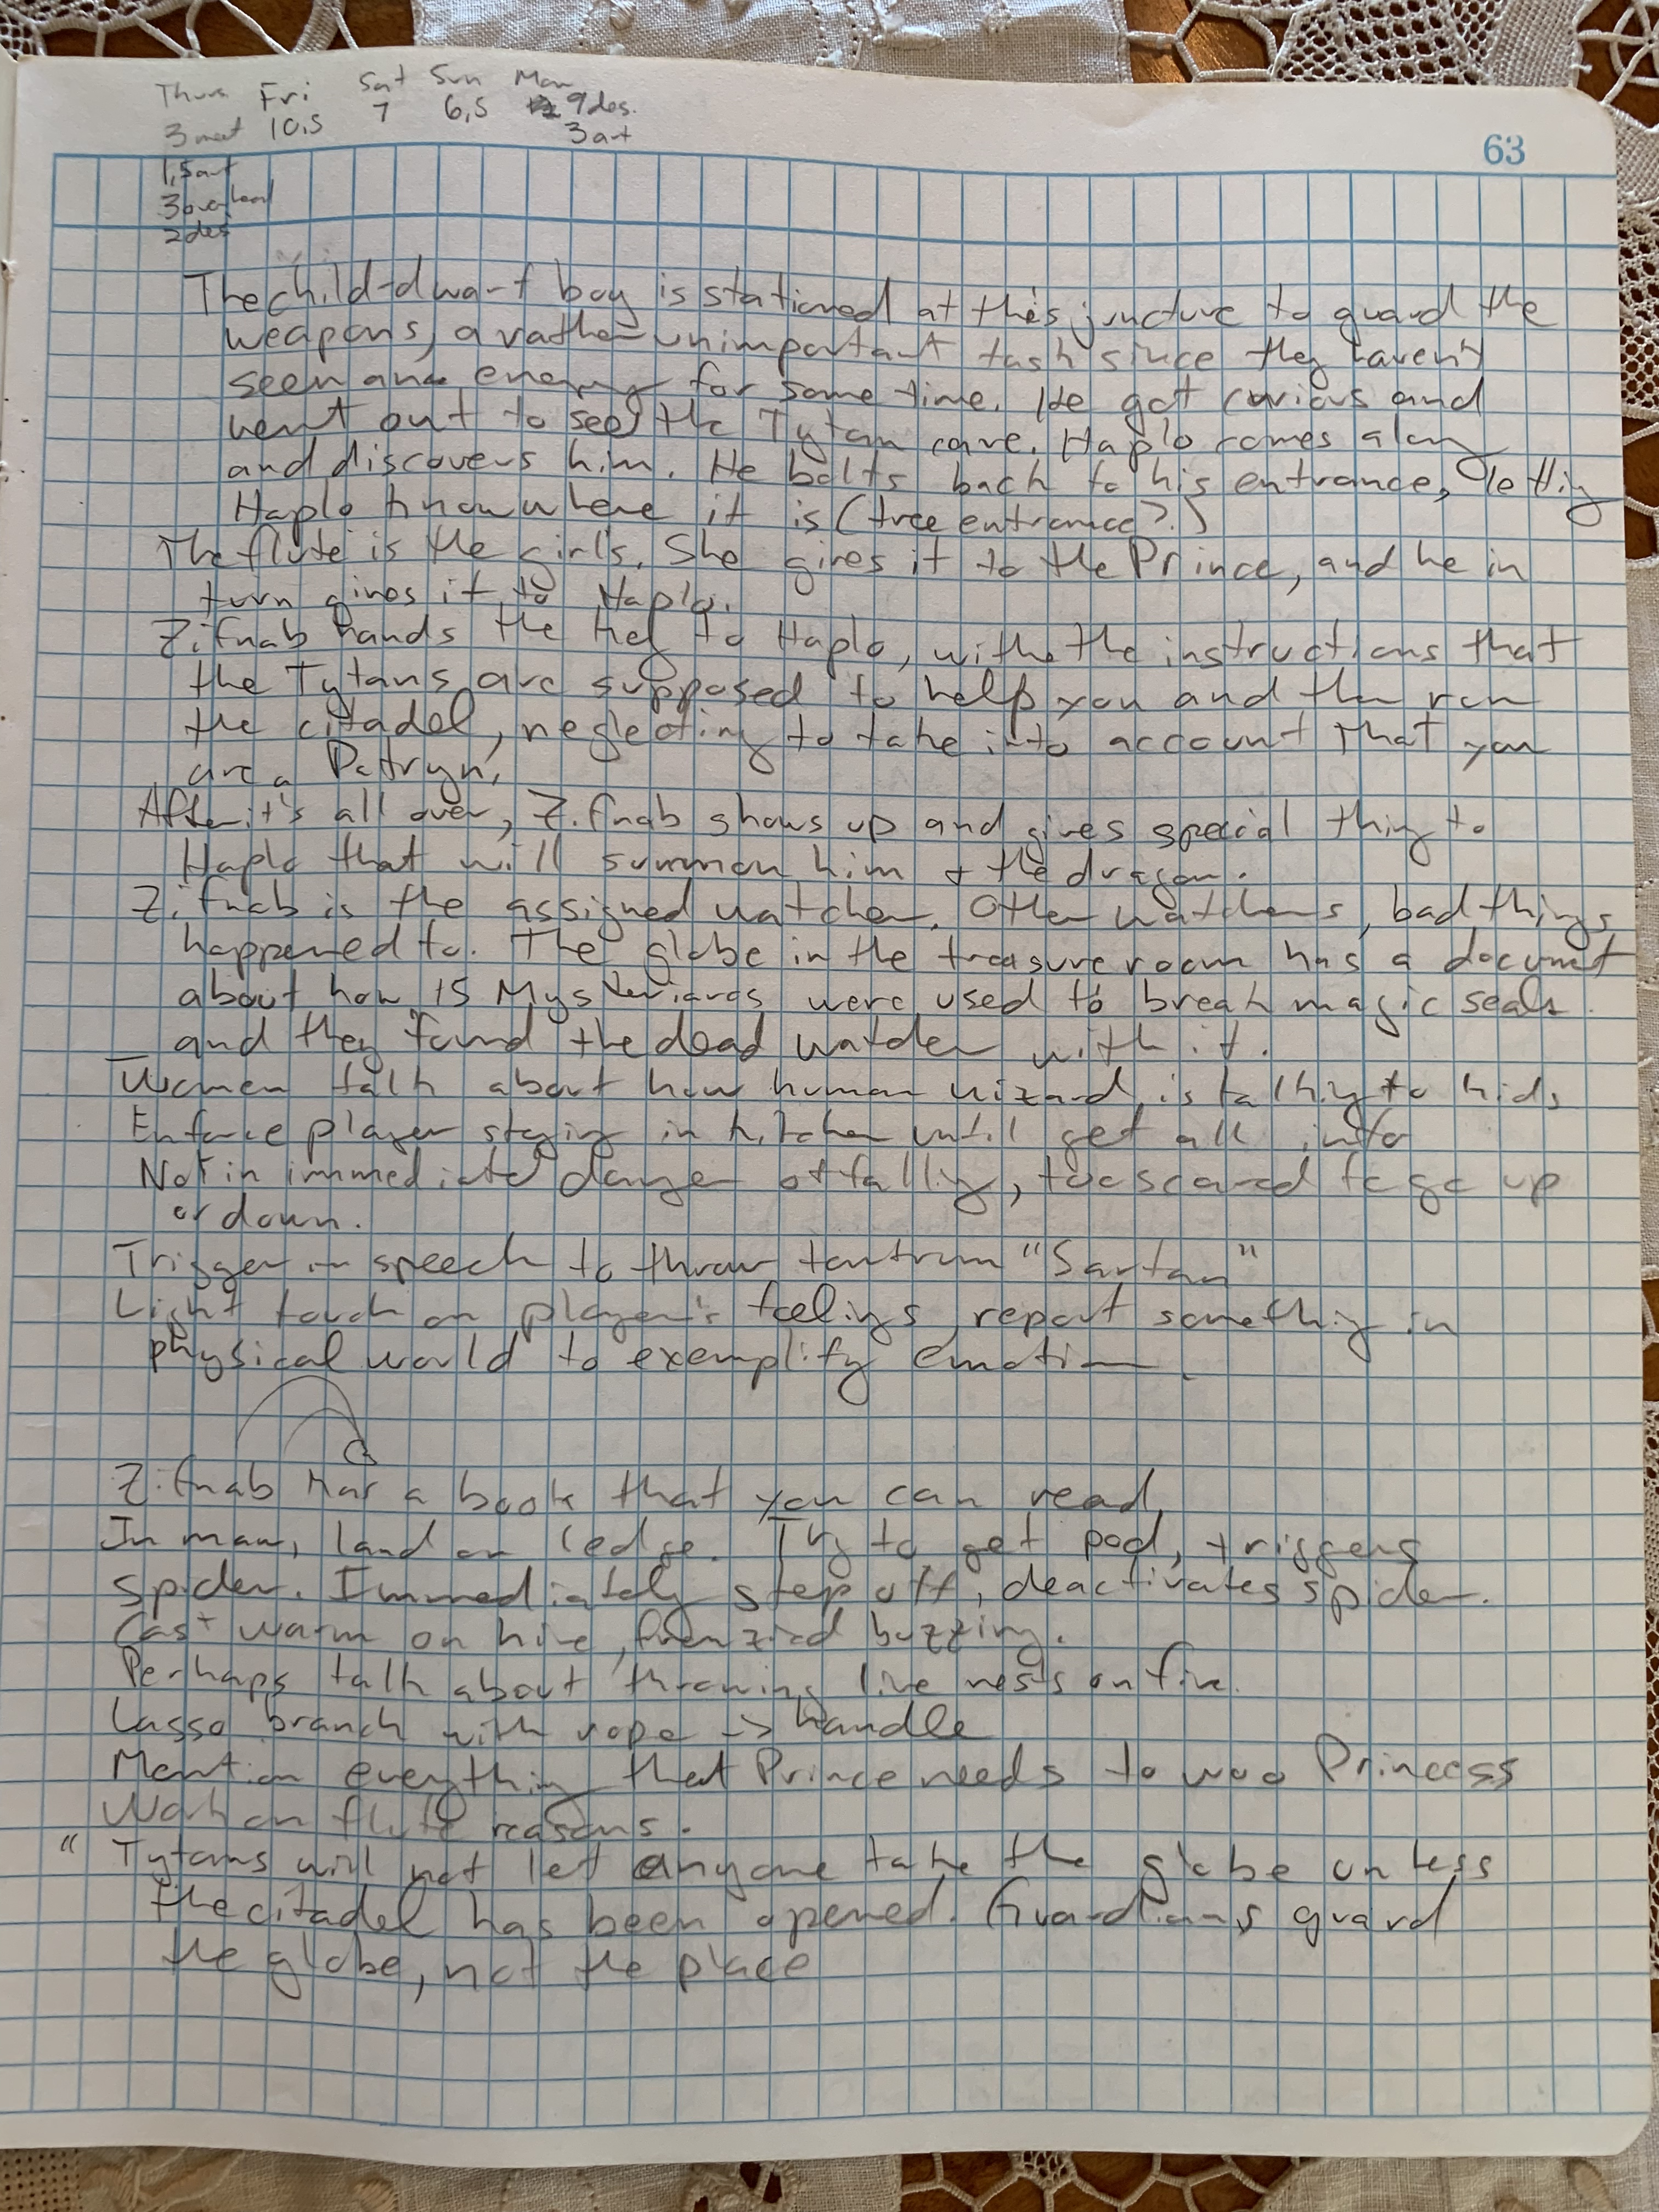 Thurs Fri Sat Sun Mon
3 meet 10,5 7 6,5 9 des.
3 art
1,5 art
3 overhead
2 des
63
The child-dwarf boy is stationed at this juncture to guard the
weapons, a rather unimportant task since they haven't
seen an enemy for some time. He got curious and
went out to see the Tytan cave. Haplo comes along
and discovers him. He bolts back to his entrance, letting
Haplo know where it is (tree entrance?)
The flute is the girl's. She gives it to the Prince, and he in
turn gives it to Haplo.
Zifnab hands the key to Haplo, with the instructions that
the Tytans are supposed to help you and then run
the citadel, neglecting to take into account that you
are a Patryn.
After it's all over, Zifnab shows up and gives special thing to
Haplo that will summon him + the dragon.
Zifnab is the assigned watcher. Other watchers, bad things
happened to. The globe in the treasure room has a document
about how 15 Mysteriarchs were used to break magic seals
and they found the dead watcher with it.
Women talk about how human wizard is talking to kids
Enforce player staying in kitchen until get all info
Not in immediate danger of falling, too scared to go up
or down.
Trigger in speech to throw tantrum "Sartan"
Light touch on player's feelings, report something in
physical world to exemplify emotion.
Zifnab has a book that you can read.
In maw, land on ledge. Try to get pod, triggers
spider. Immediately step off, deactivates spider.
Cast warm on hive, frenzied buzzing.
Perhaps talk about throwing live nests on fire.
Lasso branch with rope -> handle
Mention everything that Prince needs to woo Princess
Work on flute reasons.
" Tytans will not let anyone take the globe unless
the citadel has been opened. Guardians guard
the globe, not the place